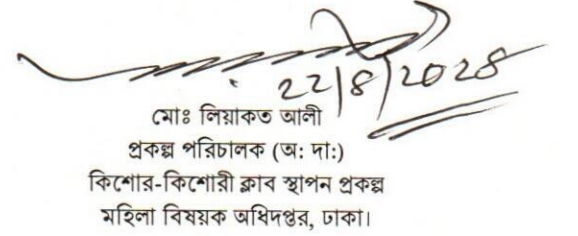 ২২/৪/২০২৪
মোঃ লিয়াকত আলী
প্রকল্প পরিচালক (অ: দা:)
কিশোর-কিশোরী ক্লাব স্থাপন প্রকল্প
মহিলা বিষয়ক অধিদপ্তর, ঢাকা।